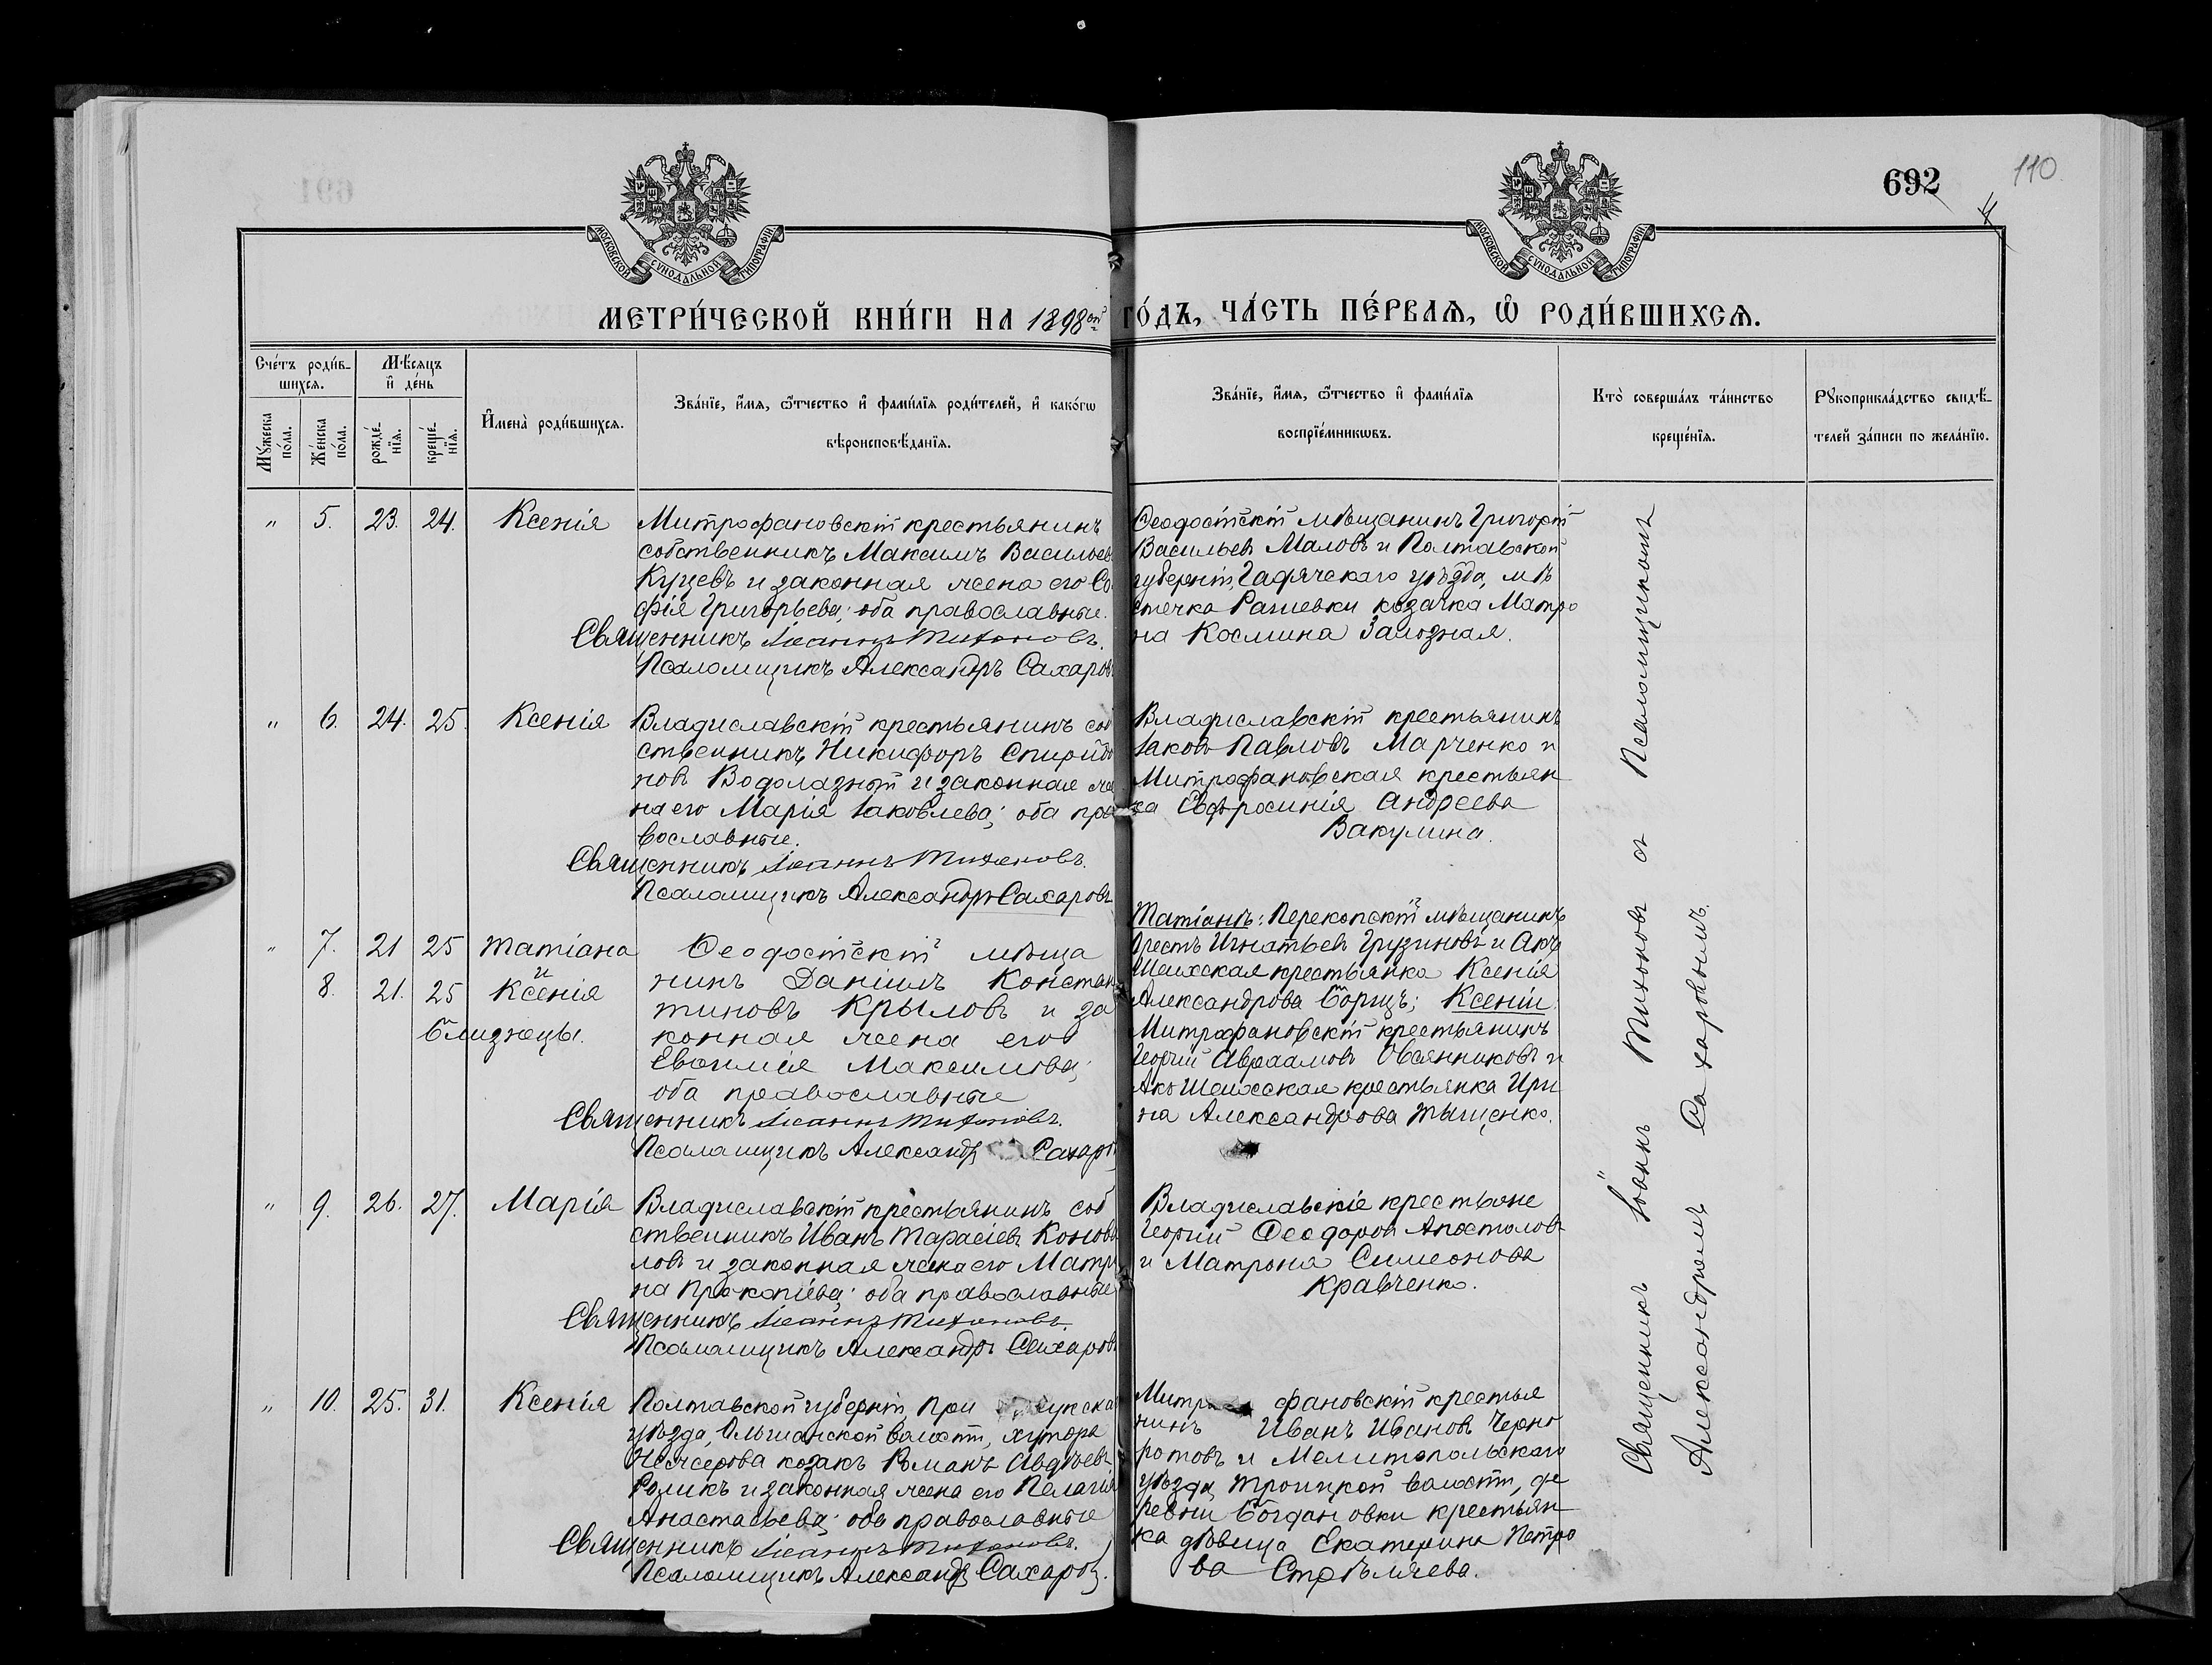 692
110
МОСКОВСКОЙ СУНОДАЛЬНОЙ ТИПОГРАФІИ
МОСКОВСКОЙ СУНОДАЛЬНОЙ ТИПОГРАФІИ
МЕТРИ́ЧЕСКОЙ КНИ́ГИ НА 1898ой ГО́ДЪ, ЧА́СТЬ ПЕ́РВАѦ, Ѡ҆ РОДИ́ВШИХСѦ.
Сче́тъ роди́в-
шихсѧ.
Мѣ́сяцъ
и҆ де́нь
Мꙋжеска по́ла.
Же́нска по́ла.
рожде́-
нїѧ.
креще́-
нїѧ.
И҆мена̀ роди́вшихсѧ.
Зва́нїе, и҆́мѧ, ѻ҆́тчество и҆ фами́лїѧ роди́телей, и҆ како́гѡ
вѣроисповѣ́данїѧ.
Зва́нїе, и҆́мѧ, ѻ҆́тчество и҆ фами́лїѧ
воспрїе́мникѡвъ.
Кто̀ соверша́лъ та́инство
креще́нїѧ.
Рꙋкоприкла́дство свидѣ́-
телей за́писи по жела́нїю.
" 5. 23. 24. Ксенія
Митрофановскій крестьянинъ
собственникъ Максимъ Васильев
Куцевъ и законная жена его Со
фія Григорьева; оба православные.
Священникъ Іоаннъ Тихоновъ.
Псаломщикъ Александръ Сахаров
Ѳеодосійскій мѣщанинъ Григорій
Васильев Маловъ и Полтавской
губерніи, Гадячскаго уѣзда, мѣ
стечка Рашевки козачка Матро
на Космина Залозная.
" 6. 24. 25. Ксенія
Владиславскій крестьянинъ соб
ственникъ Никифоръ Спиридо
новъ Водолазный и законная же
на его Марія Іаковлева; оба пра
вославные.
Священникъ Іоаннъ Тихоновъ.
Псаломщикъ Александръ Сахаровъ
Владиславскій крестьянинъ
Іаковъ Павловъ Марченко и
Митрофановская крестьян
ка Евфросинія Андреева
Вакулина.
" 7. 21 25 Татіана
и
8. 21. 25 Ксенія
близнецы.
Ѳеодосійскій мѣща
нинъ Даніилъ Констан
тиновъ Крыловъ и за
конная жена его
Евфимія Максимова;
оба православные
Священникъ Іоаннъ Тихоновъ.
Псаломщикъ Александр Сахаров
Татіанѣ: Перекопскій мѣщанинъ
Орестъ Игнатьев Грузиновъ и Акъ
Шеихская крестьянка Ксенія
Александрова Борщъ; Ксеніи:
Митрофановскій крестьянинъ
Георгій Авраамовъ Овсянниковъ и
Акъ Шеихская крестьянка Ири
на Александрова Тыщенко.
" 9. 26. 27. Марія
Владиславскій крестьянинъ соб
ственникъ Иванъ Тарасіевъ Конова
ловъ и законная жена его Матро
на Прокопіева; оба православные
Священникъ Іоаннъ Тихоновъ.
Псаломщикъ Александръ Сахаровъ
Владиславскіе крестьяне
Георгій Ѳеодоровъ Апостоловъ
и Матрона Симеонова
Кравченко.
" 10. 25. 31. Ксенія
Полтавской губерніи При лукска
уѣзда, Ольшанской волости, хутора
козакъ Романъ Авдѣевъ
и законная жена его Пелагія
Анастасьева; оба православные
Священникъ Іоаннъ Тихоновъ.
Псаломщикъ Александръ Сахаровъ.
Митро фановскій крестья
нинъ Иванъ Ивановъ Черно
ротовъ и Мелитопольскаго
уѣзда, Троицкой волости, де
ревни Богдановки крестьян
ка дѣвица Екатерина Петро
ва Стрѣляева.
Священникъ Іоаннъ Тихоновъ съ Псаломщикомъ
Александромъ Сахаровымъ.